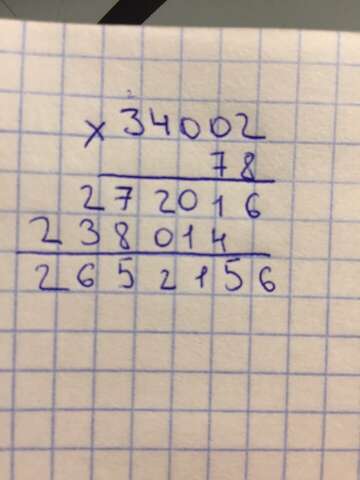 × 34002
78
272016
238014
2652156